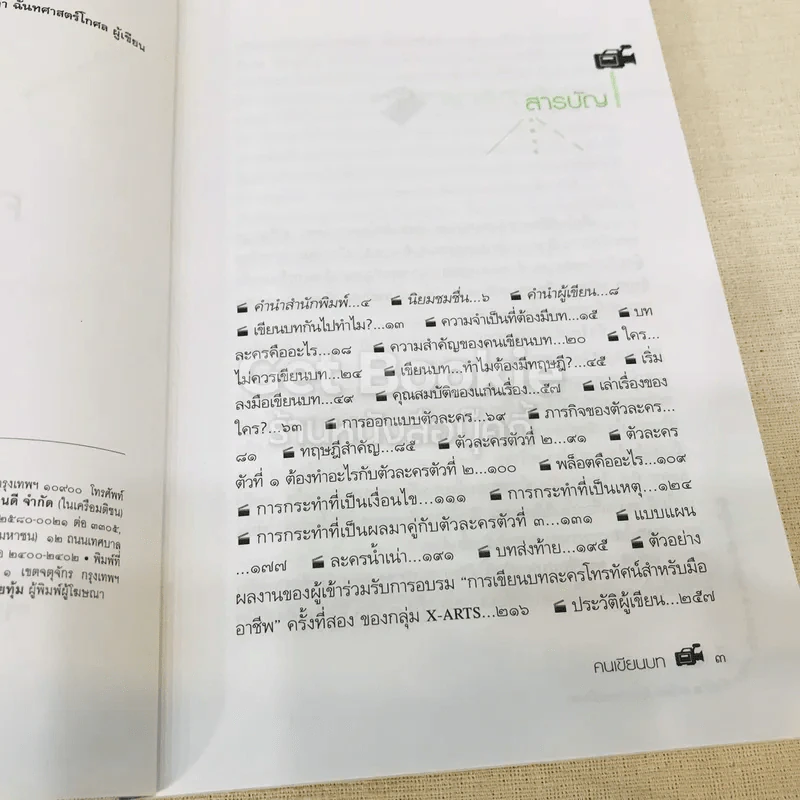 า ฉันทศาสตร์โกศล ผู้เขียน
กรุงเทพฯ ๑๐๙๐๐ โทรศัพท์
นดี จำกัด (ในเครือมติชน)
๒๕๘๐-๐๐๒๑ ต่อ ๓๓๐๕,
มหาชน) ๑๒ ถนนเทศบาล
๒๔๐๐-๒๔๐๒ • พิมพ์ที่
๑ เขตจตุจักร กรุงเทพฯ
ยทุ้ม ผู้พิมพ์ผู้โฆษณา
สารบัญ
คำนำสำนักพิมพ์...๔ นิยมชมชื่น...๖ คำนำผู้เขียน...๘
เขียนบทกันไปทำไม?...๑๓ ความจำเป็นที่ต้องมีบท...๑๕ บท
ละครคืออะไร...๑๘ ความสำคัญของคนเขียนบท...๒๐ ใคร...
ไม่ควรเขียนบท...๒๔ เขียนบท...ทำไมต้องมีทฤษฎี?...๔๕ เริ่ม
ลงมือเขียนบท...๔๙ คุณสมบัติของแก่นเรื่อง...๕๗ เล่าเรื่องของ
ใคร?...๖๓ การออกแบบตัวละคร...๖๙ ภารกิจของตัวละคร...
๘๑ ทฤษฎีสำคัญ...๘๕ ตัวละครตัวที่ ๒...๙๑ ตัวละคร
ตัวที่ ๑ ต้องทำอะไรกับตัวละครตัวที่ ๒...๑๐๐ พล็อตคืออะไร...๑๐๙
การกระทำที่เป็นเงื่อนไข...๑๑๑ การกระทำที่เป็นเหตุ...๑๒๔
การกระทำที่เป็นผลมาคู่กับตัวละครตัวที่ ๓...๑๓๑ แบบแผน
...๑๗๗ ละครน้ำเน่า...๑๙๑ บทส่งท้าย...๑๙๕ ตัวอย่าง
ผลงานของผู้เข้าร่วมรับการอบรม “การเขียนบทละครโทรทัศน์สำหรับมือ
อาชีพ” ครั้งที่สอง ของกลุ่ม X-ARTS...๒๑๖ ประวัติผู้เขียน...๒๕๗
คนเขียนบท ๓
Get Book
ร้านหนังสือมุ๊คตี้